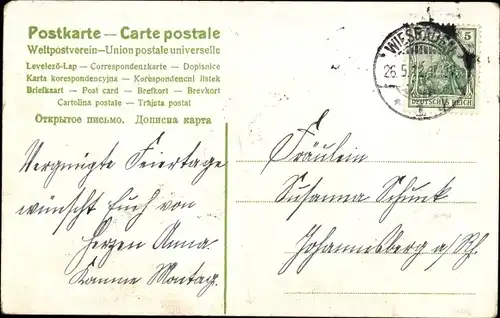 Postkarte — Carte postale
Weltpostverein — Union postale universelle
Levelező-Lap — Correspondenzkarte — Dopisnice
Karta korespondencyjna — Korespondenční lístek
Briefkaart — Post card — Brefkort — Brevkort
Cartolina postale — Trăjeta postal
Открытое письмо. Дописна карта
WIESBADEN
26.5.12
5
DEUTSCHES REICH
Vergnügte Feiertage
wünscht Euch von
Herzen Anna
Komme Montag.
Fräulein
Susanna Schunk
Johannesberg a/Rh.